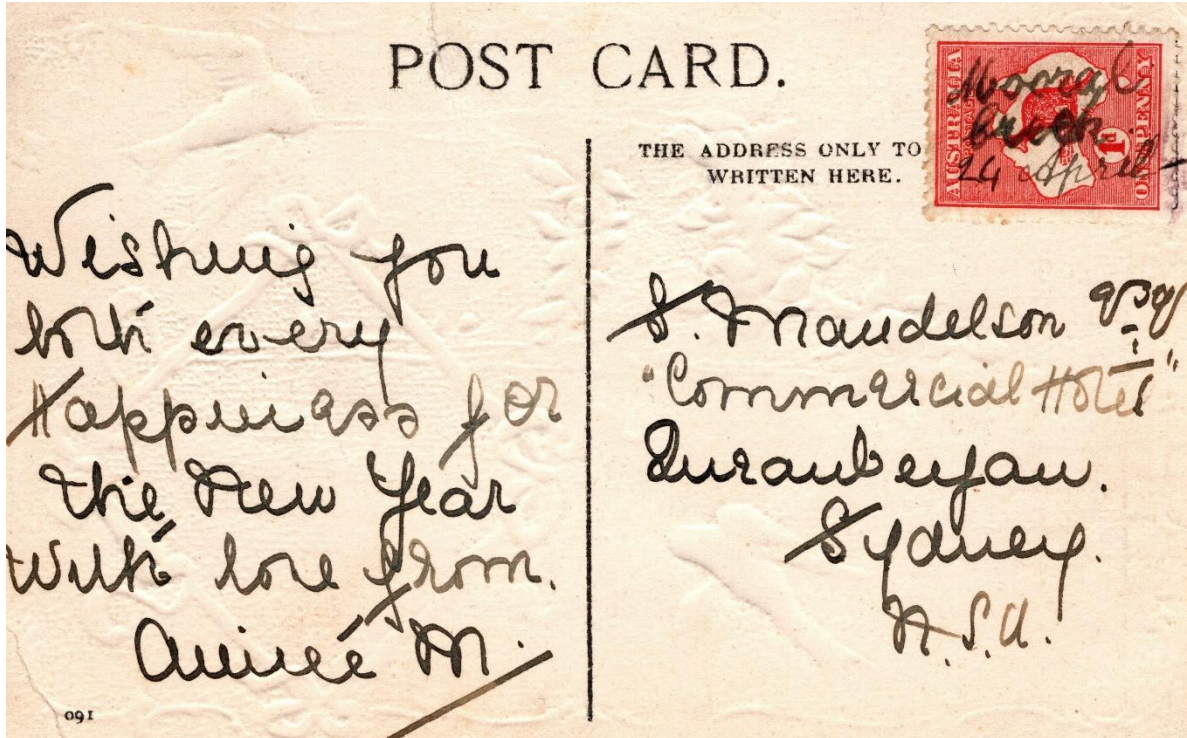 POST CARD.
THE ADDRESS ONLY TO
WRITTEN HERE.
AUSTRALIA
POSTAGE
1d
ONE PENNY
24 April
Wishing you
both every
Happiness for
the New Year
With love from.
Aimée M.
S. Mandelson Esq
"Commercial Hotel"
Queanbeyan.
Sydney.
N.S.W.
091